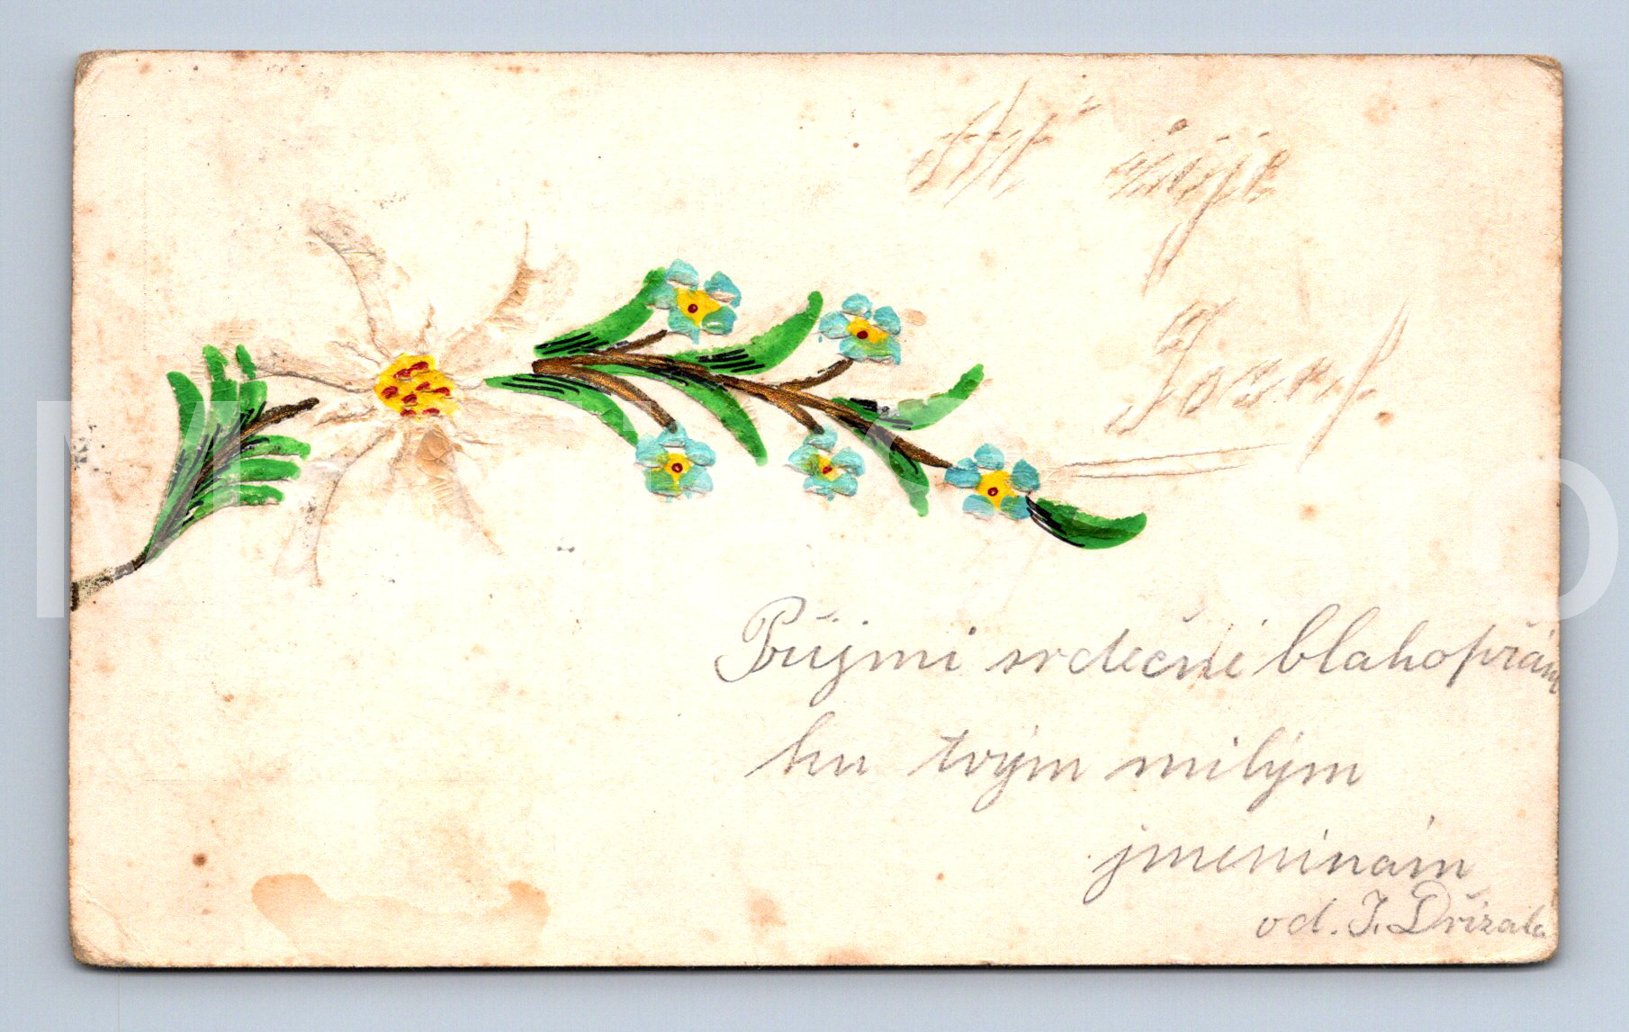 Ať žije
Jozef.
Přijmi srdečné blahopřání
ku tvým milým
jmeninám
od. J. Dřízala